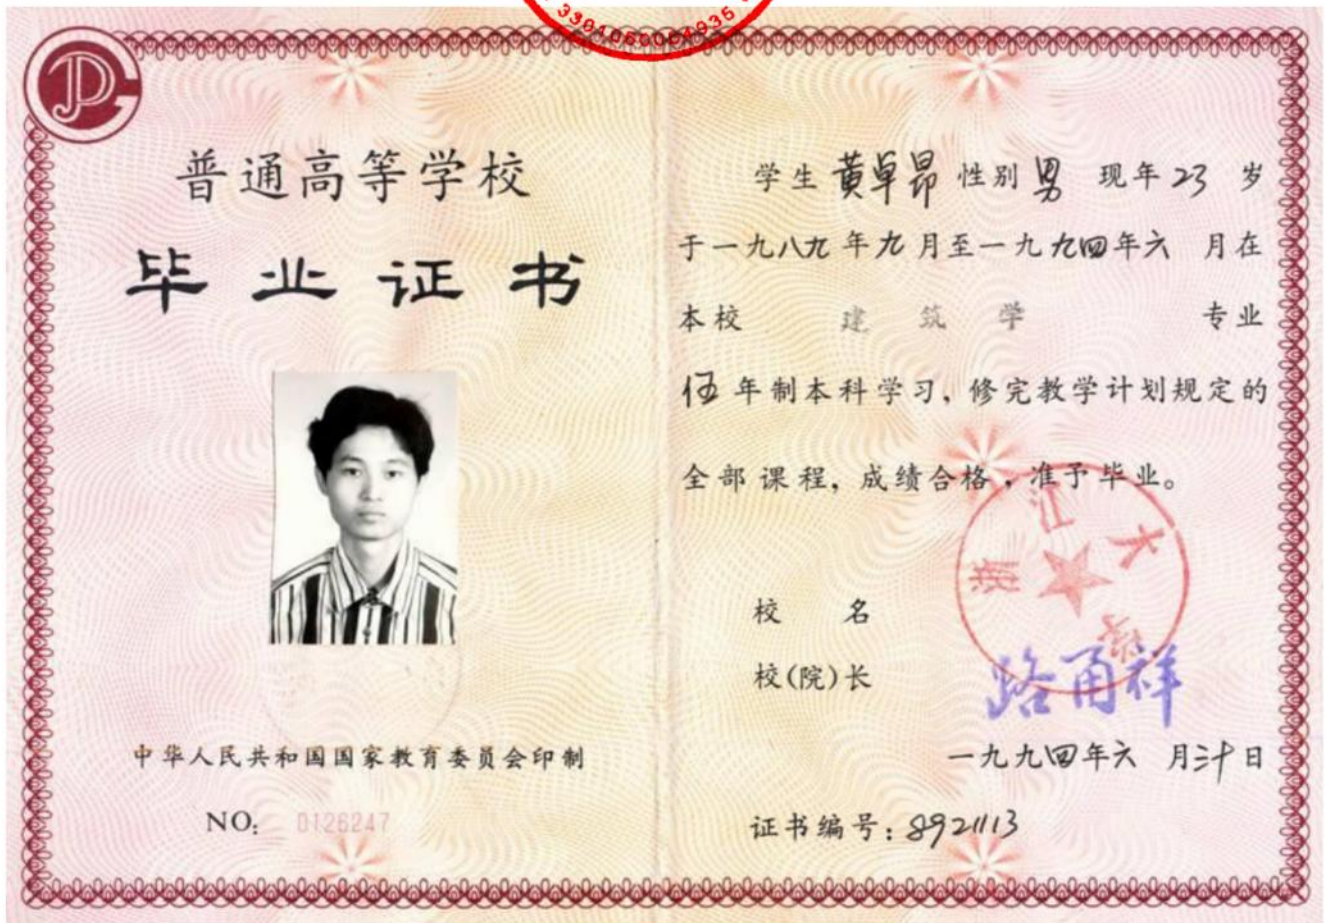 3301060064935
普通高等学校
毕业证书
中华人民共和国国家教育委员会印制
NO: 0126247
学生 黄卓昂 性别 男 现年 23 岁
于一九八九年九月至一九九四年六 月在
本校 建筑学 专业
伍年制本科学习,修完教学计划规定的
全部课程,成绩合格,准予毕业。
浙江大学
校 名
校(院)长 路甬祥
一九九四年六 月三十日
证书编号:8921113